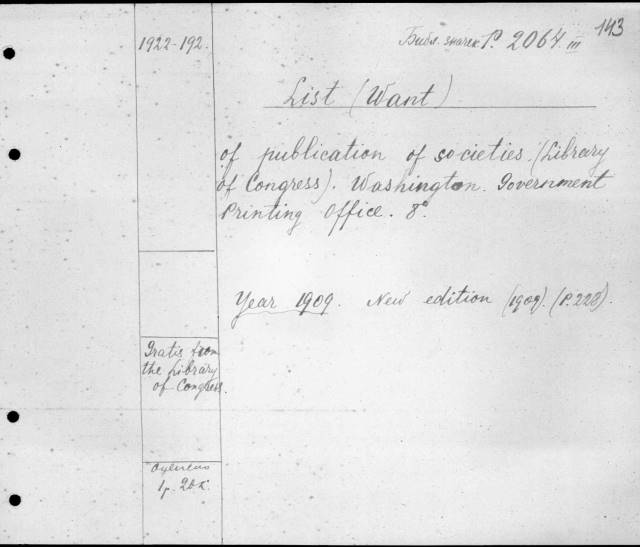 143
1922-192.
Библ. значек P. 2064 III
List (Want)
of publication of societies. (Library
of Congress). Washington. Government
Printing Office. 8°.
Year 1909. New edition (1909). (P. 228).
Gratis from
the Library
of Congress.
1р. 20к.